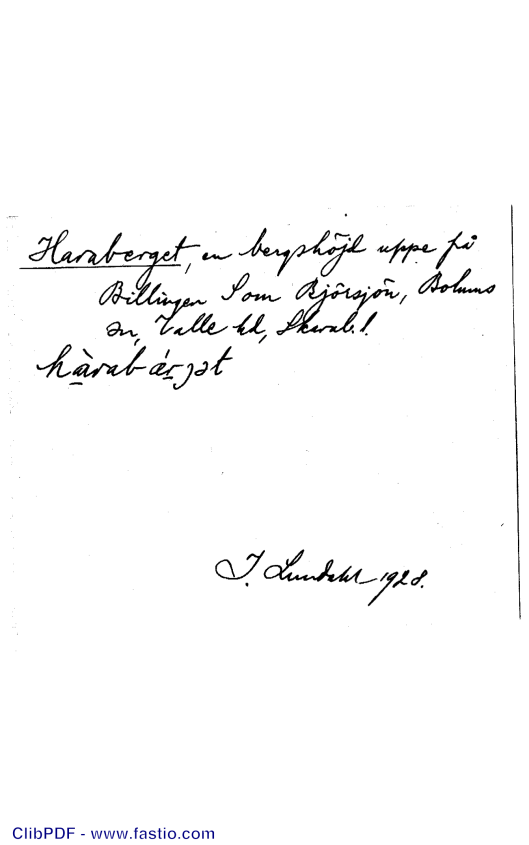 Haraberget, en bergshöjd uppe på
Billingen S om Björsjön, Bolums
sn, Valle hd, Skarab. l.
hàrabárjət
I. Lundahl 1928.
ClibPDF - www.fastio.com